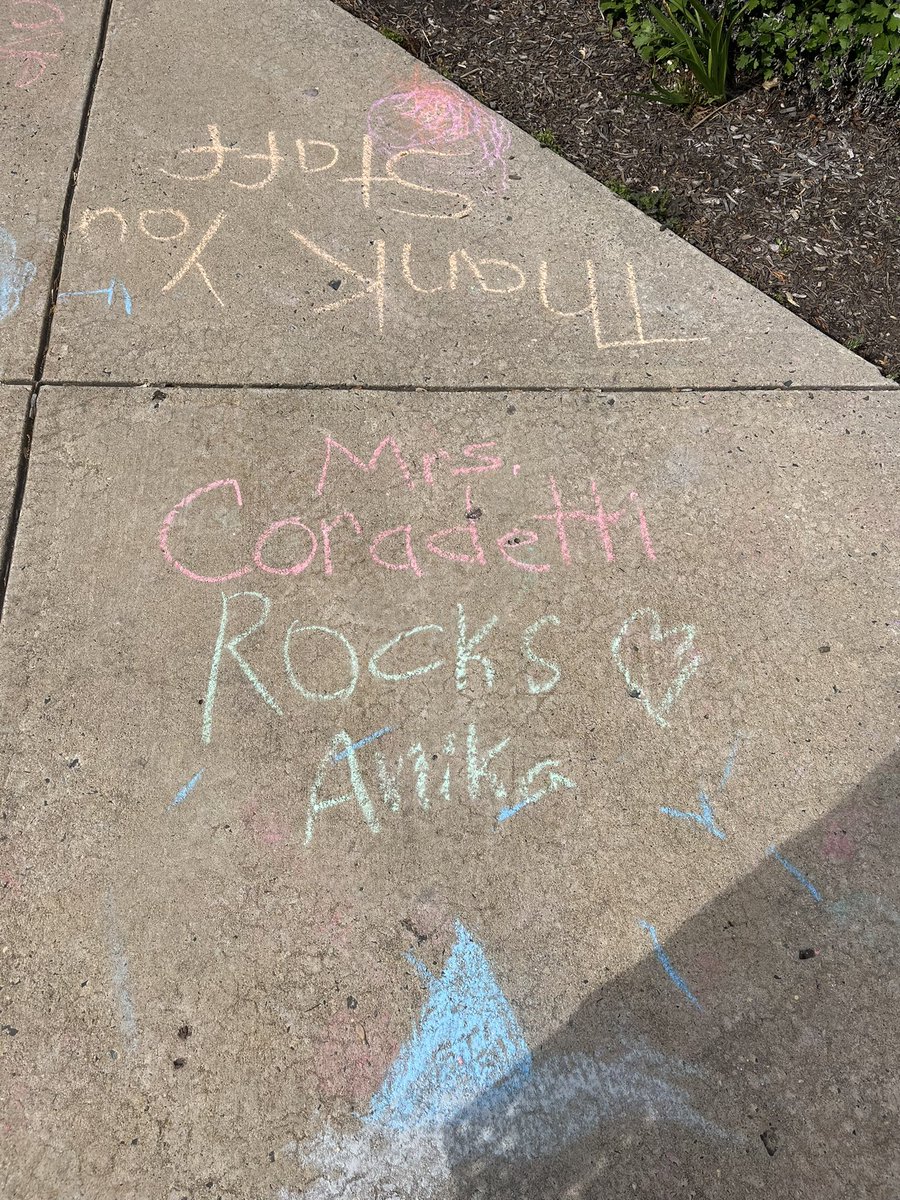 Thank You
Staff
Mrs.
Coradetti
Rocks
Anika